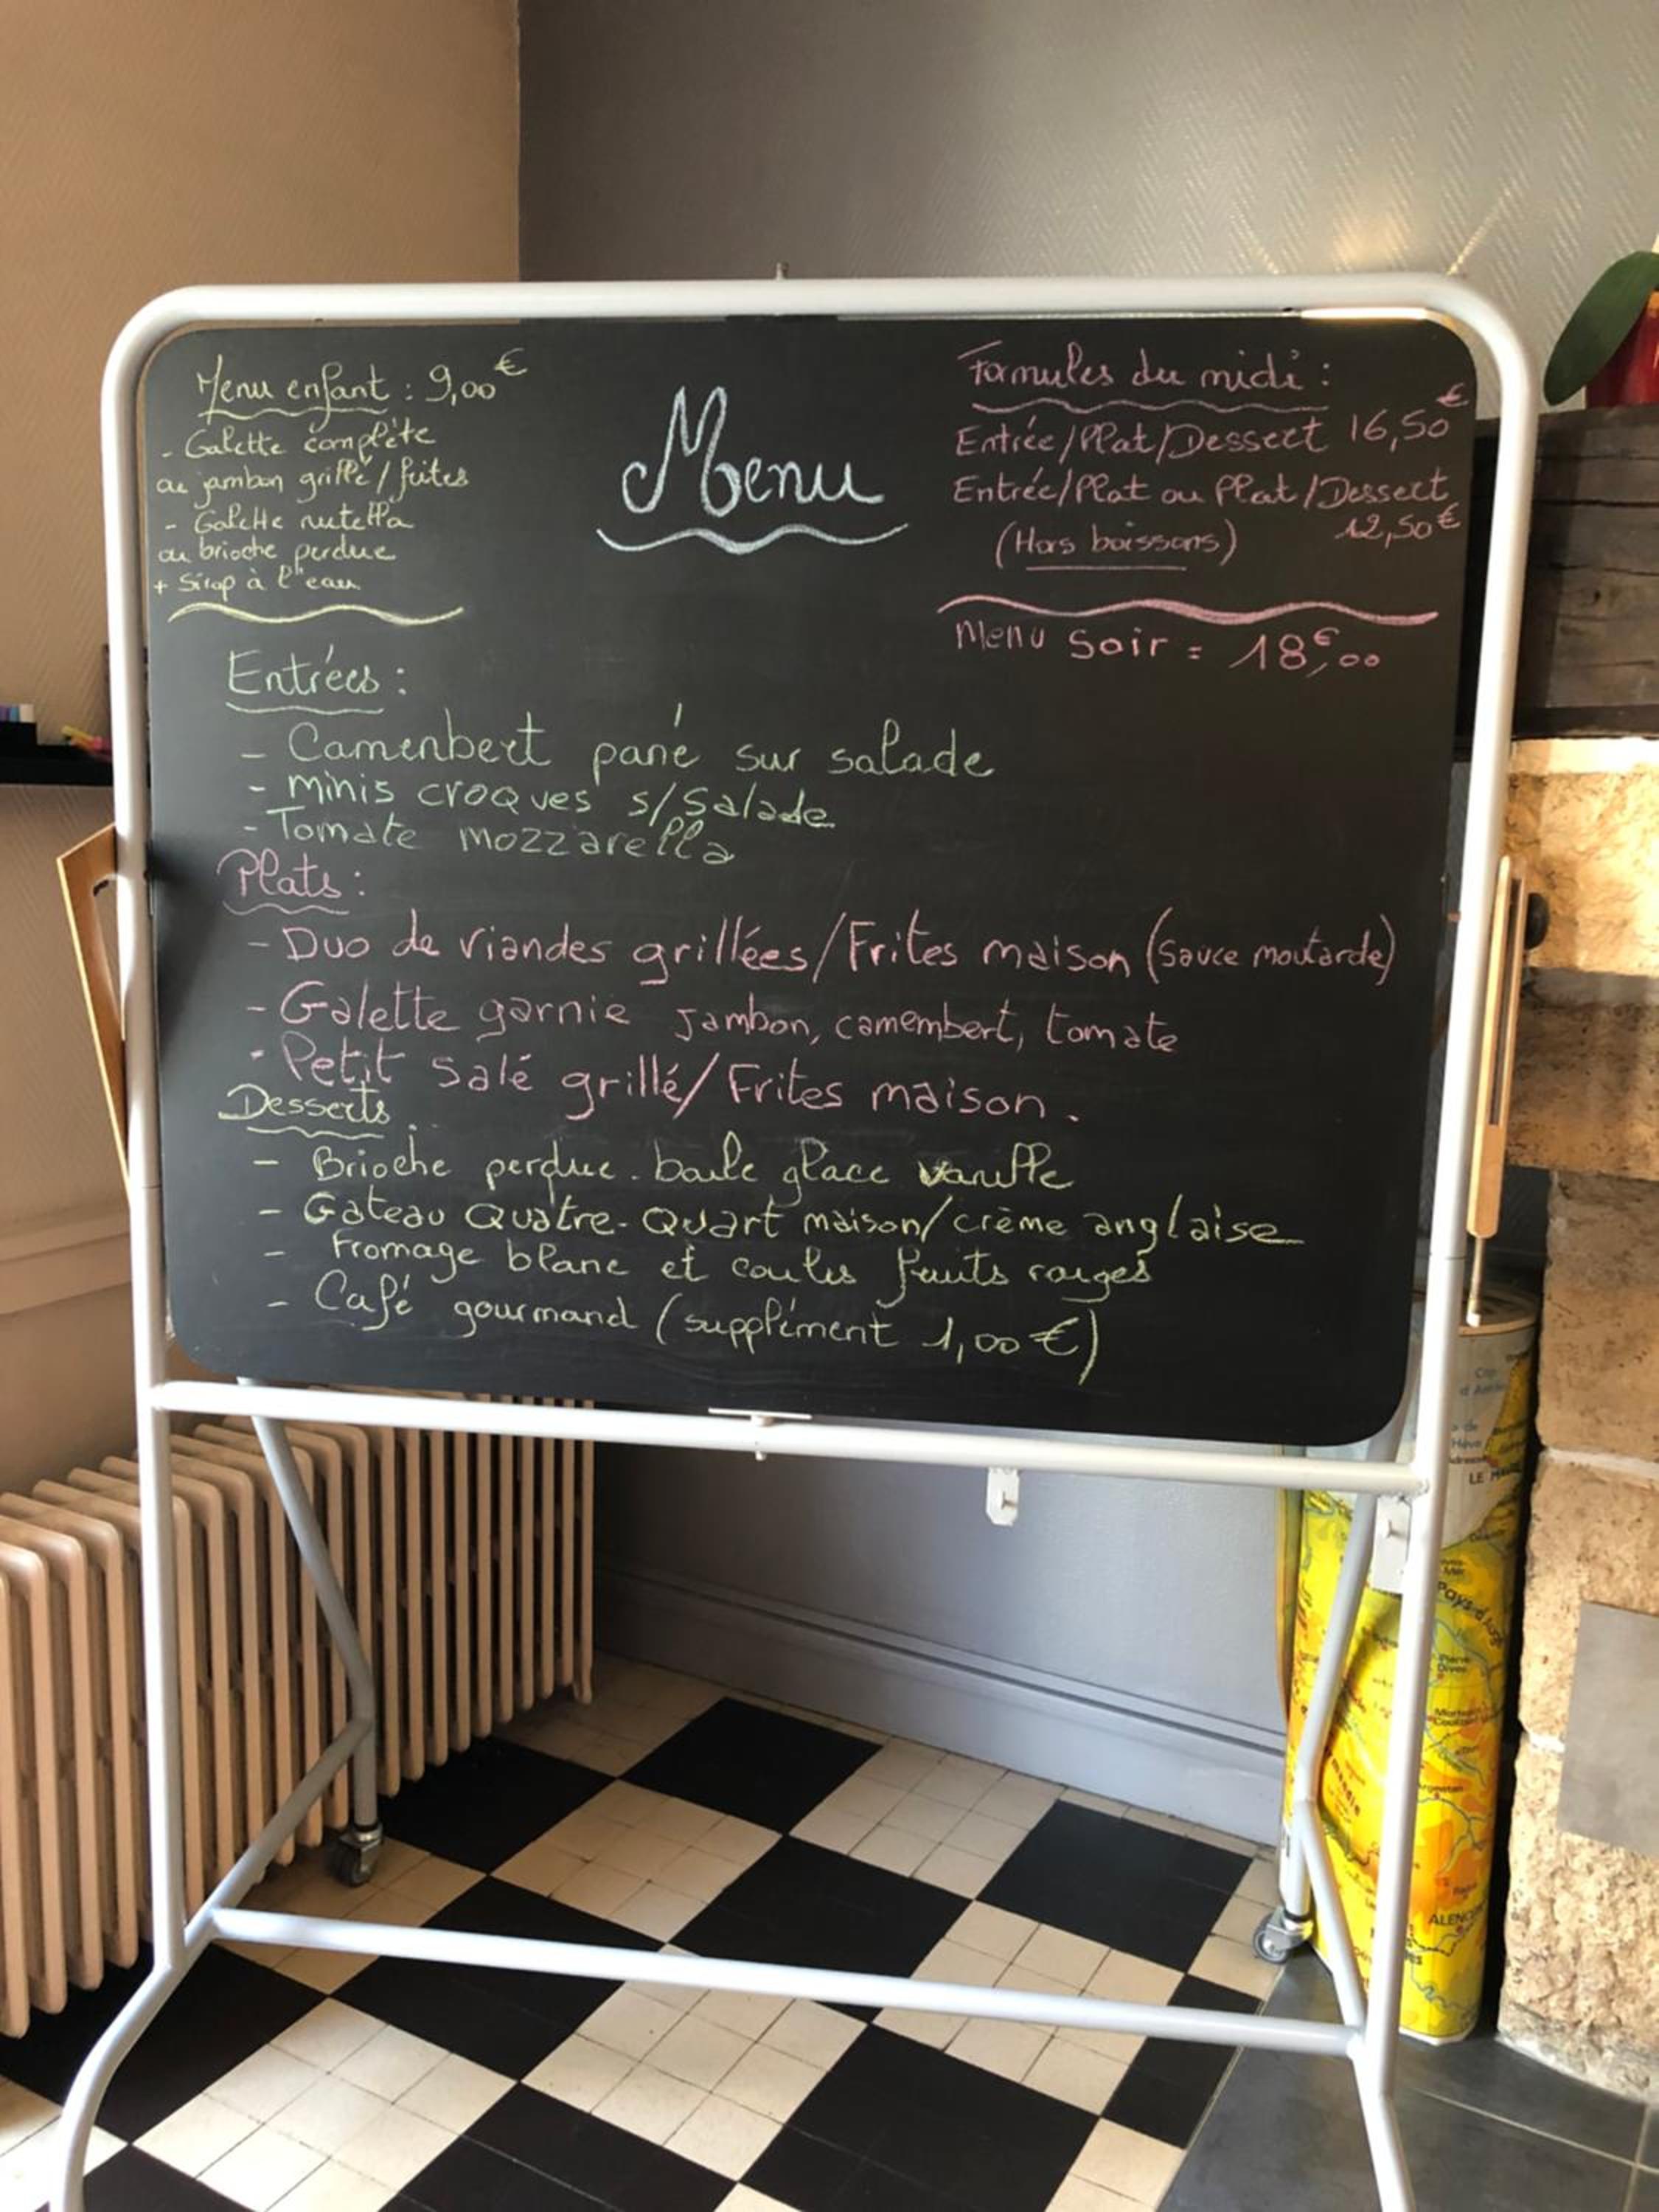 Menu enfant : 9,00€
- Galette complète
ou jambon grillé / frites
- Galette nutella
ou brioche perdue
+ Sirop à l'eau
Menu
Formules du midi :
Entrée/Plat/Dessert 16,50€
Entrée/Plat ou Plat/Dessert
(Hors boissons) 12,50€
Menu Soir = 18€,00
Entrées :
- Camenbert pané sur salade
- Minis croques s/Salade
- Tomate mozzarella
Plats :
- Duo de viandes grillées/Frites maison (Sauce moutarde)
- Galette garnie Jambon, camembert, tomate
- Petit Salé grillé/Frites maison.
Desserts :
- Brioche perdue - boule glace vanille
- Gateau Quatre-Quart maison/crème anglaise
- Fromage blanc et coulis fruits rouges
- Café gourmand (supplément 1,00€)
LE HAVRE
Pays d'Auge
Argentan
ALENÇON